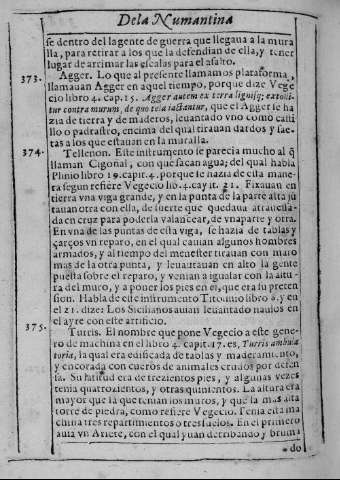 Dela Numantina
se dentro del lagente de guerra que llegaua a la mura
lla, para retirar a los que la defendian de ella, y tener
lugar de arrimar las escalas para el asalto.
373.
Agger. Lo que al presente llamamos plataforma,
llamauan Agger en aquel tiempo, porque dize Vege
cio libro 4. cap. 15. Agger autem ex terra lignisq; extolli-
tur contra murum, de quo tela iactantur, que el Agger se ha
zia de tierra y de maderos, leuantado vno como casti
llo o padrastro, encima del qual tirauan dardos y sae-
tas a los que estauan en la muralla.
374.
Tellenon. Este instrumento se parecia mucho al q̃
llaman Cigoñal, con que sacan agua; del qual habla
Plinio libro 19. capit. 4. porque se hazia de esta mane
ra segun refiere Vegecio lib. 4. cayit. 21. Fixauan en
tierra vna viga grande, y en la punta de la parte alta jũ
tauan otra con ella, de suerte que quedaua atrauesa-
da en cruz para poderla valancear, de vna parte y otra.
En vna de las puntas de esta viga, se hazia de tablas y
çarços vn reparo, en el qual cauian algunos hombres
armados, y al tiempo del menester tirauan con maro
mas de la otra punta, y leuantauan en alto la gente
puesta sobre el reparo, y venian a igualar con la altu-
ra del muro, y a poner los pies en el, que era su preten
sion. Habla de este instrumento Tito liuio libro 8. y en
el 21. dize: Los Sicilianos auian leuantado nauios en
el ayre con este artificio.
375.
Turris. El nombre que pone Vegecio a este gene-
ro de machina en el libro 4. capit. 17. es, Turris ambula
toria, la qual era edificada de tablas y maderamiento,
y encorada con cueros de animales crudos por defen
sa. Su latitud era de trezientos pies, y algunas vezes
tenia quatrozientos, y otras quinientos. La altura era
mayor que la que tenian los muros, y que la mas alta
torre de piedra, como refiere Vegecio. Tenia esta ma
china tres repartimientos o tres suelos. En el primero
auia vn Ariete, con el qual yuan derribando y
do